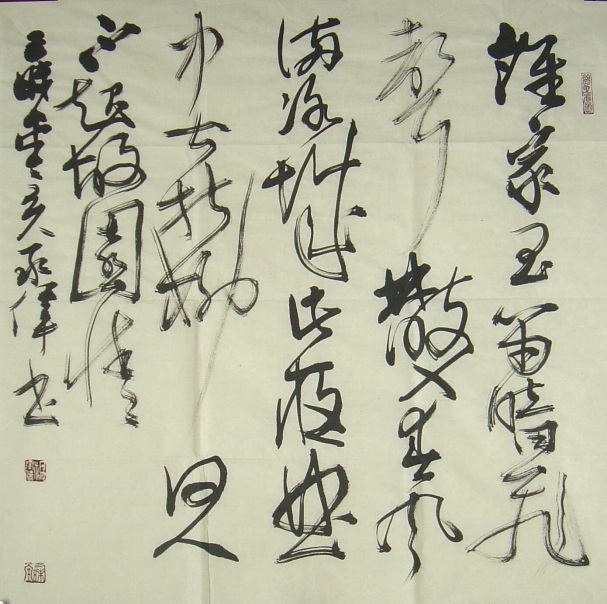 誰家玉笛暗飛
聲散入春風
滿洛城此夜曲
中聞折柳何人
不起故園情
歲亥書